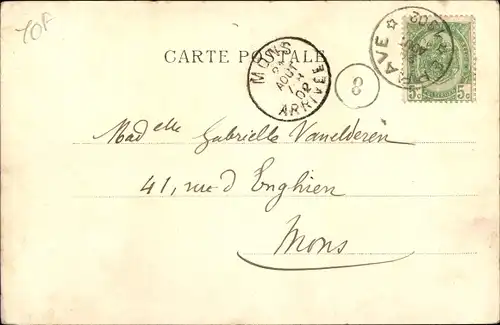 70F
CARTE POSTALE
MONS
5
AOUT
1902
ARRIVÉE
3
1902
5c 5c
Madelle Gabrielle Vanelderen
41, rue d'Enghien
Mons